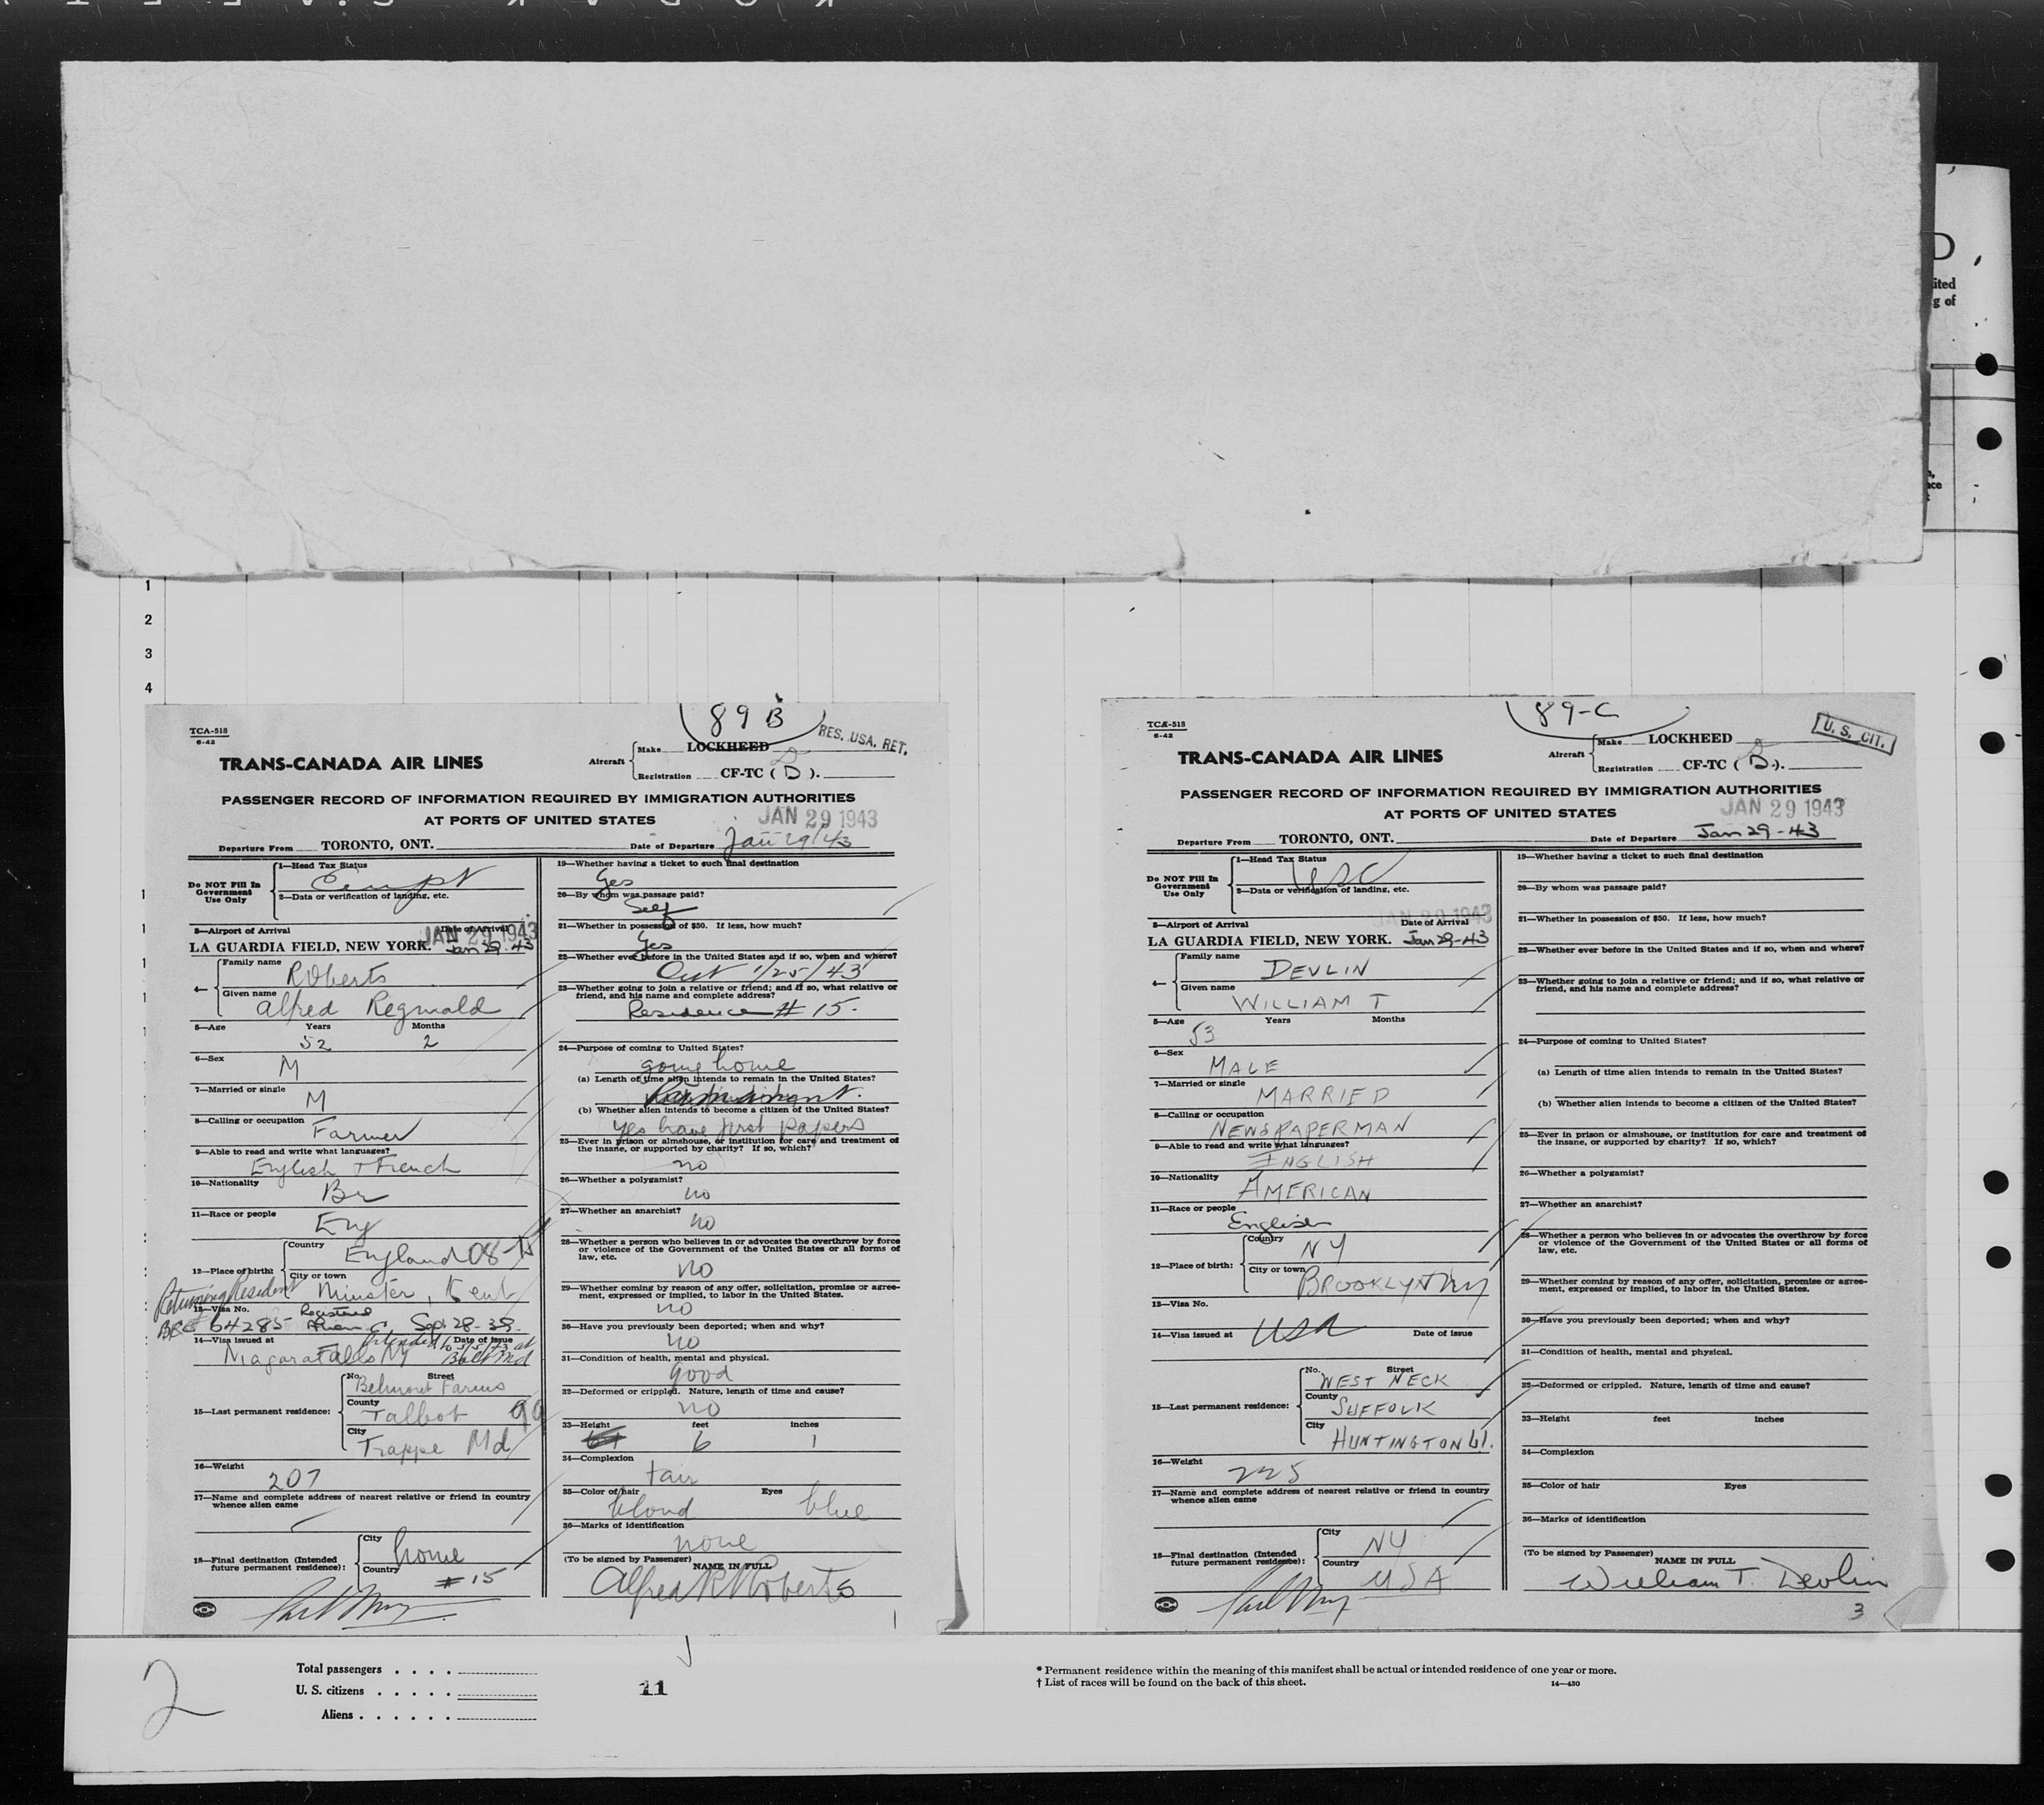 KODAK SAFETY
D
ited
g of
1
2
3
4
89 B
RES. USA. RET.
TCA-518
6-42
TRANS-CANADA AIR LINES
Aircraft
Make LOCKHEED
Registration CF-TC ( D ).
PASSENGER RECORD OF INFORMATION REQUIRED BY IMMIGRATION AUTHORITIES
AT PORTS OF UNITED STATES
JAN 29 1943
Departure From TORONTO, ONT. Date of Departure Jan 29/43
Do NOT Fill In Government Use Only
1—Head Tax Status
2—Data or verification of landing, etc.
3—Airport of Arrival Date of Arrival
JAN 29 1943
LA GUARDIA FIELD, NEW YORK. Jan 29-43
4—
Family name Roberts
Given name Alfred Reginald
5—Age Years Months
52 2
6—Sex
M
7—Married or single
M
8—Calling or occupation
Farmer
9—Able to read and write what languages?
English + French
10—Nationality
Br
11—Race or people
Eng
12—Place of birth:
Country England
City or town Minster, Kent
Returning Resident
13—Visa No. Registered
64285 Alien Sept 28-39
14—Visa issued at Date of issue
Niagara Falls NY
15—Last permanent residence:
No. Street
Belmont Farms
County
Talbot
City
Trappe Md
16—Weight
207
17—Name and complete address of nearest relative or friend in country whence alien came
18—Final destination (Intended future permanent residence):
City home
Country #15
19—Whether having a ticket to such final destination
Yes
20—By whom was passage paid?
Self
21—Whether in possession of $50. If less, how much?
Yes
22—Whether ever before in the United States and if so, when and where?
Out 1/25/43
23—Whether going to join a relative or friend; and if so, what relative or friend, and his name and complete address?
Residence #15.
24—Purpose of coming to United States?
going home
(a) Length of time alien intends to remain in the United States?
Permanent.
(b) Whether alien intends to become a citizen of the United States?
yes have first papers
25—Ever in prison or almshouse, or institution for care and treatment of the insane, or supported by charity? If so, which?
no
26—Whether a polygamist?
no
27—Whether an anarchist?
no
28—Whether a person who believes in or advocates the overthrow by force or violence of the Government of the United States or all forms of law, etc.
no
29—Whether coming by reason of any offer, solicitation, promise or agreement, expressed or implied, to labor in the United States.
no
30—Have you previously been deported; when and why?
no
31—Condition of health, mental and physical.
good
32—Deformed or crippled. Nature, length of time and cause?
no
33—Height feet inches
6 1
34—Complexion
fair
35—Color of hair Eyes
blond blue
36—Marks of identification
none
(To be signed by Passenger) NAME IN FULL
Alfred R Roberts
1
89-C
U. S. CIT.
TCA-518
6-42
TRANS-CANADA AIR LINES
Aircraft
Make LOCKHEED
Registration CF-TC ( D ).
PASSENGER RECORD OF INFORMATION REQUIRED BY IMMIGRATION AUTHORITIES
AT PORTS OF UNITED STATES
JAN 29 1943
Departure From TORONTO, ONT. Date of Departure Jan 29-43
Do NOT Fill In Government Use Only
1—Head Tax Status
USC
2—Data or verification of landing, etc.
3—Airport of Arrival Date of Arrival
JAN 29 1943
LA GUARDIA FIELD, NEW YORK. Jan 29-43
4—
Family name DEVLIN
Given name WILLIAM T
5—Age Years Months
53
6—Sex
MALE
7—Married or single
MARRIED
8—Calling or occupation
NEWSPAPERMAN
9—Able to read and write what languages?
ENGLISH
10—Nationality
AMERICAN
11—Race or people
English
12—Place of birth:
Country NY
City or town BROOKLYN NY
13—Visa No.
14—Visa issued at USA Date of issue
15—Last permanent residence:
No. Street
WEST NECK
County
SUFFOLK
City
HUNTINGTON LI.
16—Weight
225
17—Name and complete address of nearest relative or friend in country whence alien came
18—Final destination (Intended future permanent residence):
City NY
Country USA
19—Whether having a ticket to such final destination
20—By whom was passage paid?
21—Whether in possession of $50. If less, how much?
22—Whether ever before in the United States and if so, when and where?
23—Whether going to join a relative or friend; and if so, what relative or friend, and his name and complete address?
24—Purpose of coming to United States?
(a) Length of time alien intends to remain in the United States?
(b) Whether alien intends to become a citizen of the United States?
25—Ever in prison or almshouse, or institution for care and treatment of the insane, or supported by charity? If so, which?
26—Whether a polygamist?
27—Whether an anarchist?
28—Whether a person who believes in or advocates the overthrow by force or violence of the Government of the United States or all forms of law, etc.
29—Whether coming by reason of any offer, solicitation, promise or agreement, expressed or implied, to labor in the United States.
30—Have you previously been deported; when and why?
31—Condition of health, mental and physical.
32—Deformed or crippled. Nature, length of time and cause?
33—Height feet inches
34—Complexion
35—Color of hair Eyes
36—Marks of identification
(To be signed by Passenger) NAME IN FULL
William T. Devlin
3
2
Total passengers . . . .
U. S. citizens . . . . .
Aliens . . . . . .
11
* Permanent residence within the meaning of this manifest shall be actual or intended residence of one year or more.
† List of races will be found on the back of this sheet. 14—430